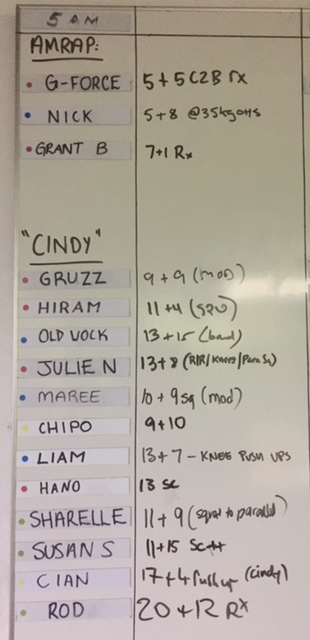 5 AM
AMRAP:
G-FORCE 5+5 C2B rx
NICK 5+8 @35kg OHS
GRANT B 7+1 Rx
"CINDY"
GRUZZ 9+9 (mod)
HIRAM 11+4
OLD VOCK 13+15 (band)
JULIE N 13+8 (R/R/Knees/Para Sq)
MAREE 10+9 sq (mod)
CHIPO 9+10
LIAM 13+7 - KNEE PUSH UPS
HANO 13 SC
SHARELLE 11+9 (squat to parallel)
SUSAN S 11+15 SC++
CIAN 17+4 Push up (cindy)
ROD 20+12 Rx